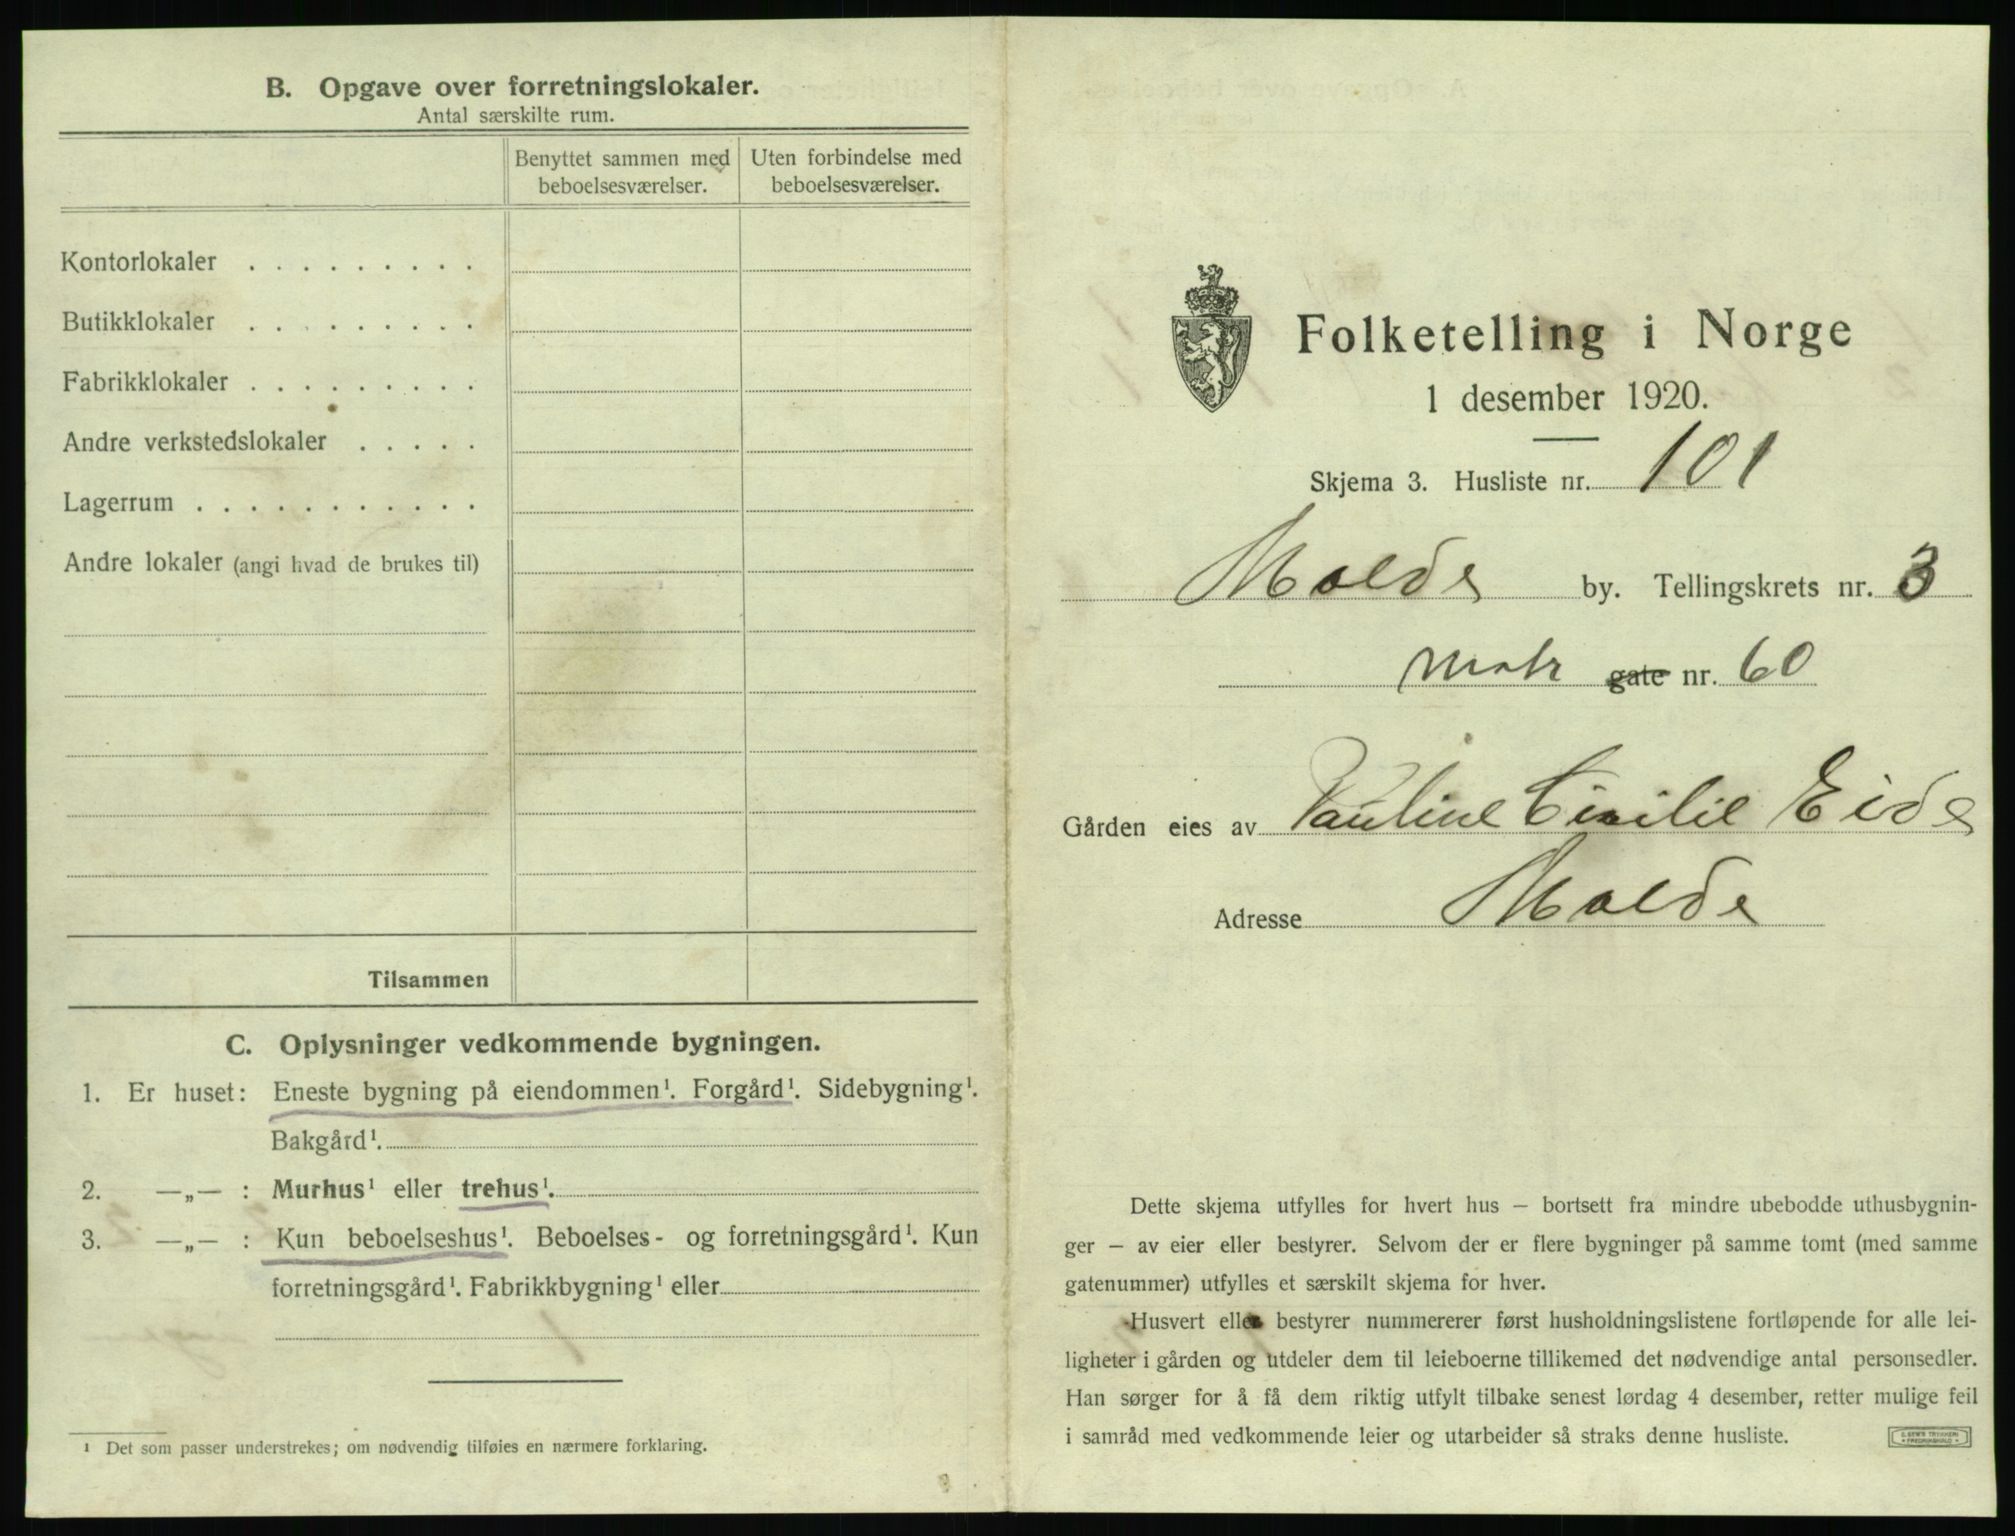 B. Opgave over forretningslokaler.
Antal særskilte rum.
Benyttet sammen med beboelsesværelser.
Uten forbindelse med beboelsesværelser.
Kontorlokaler . . . . . . . . .
Butikklokaler . . . . . . . . .
Fabrikklokaler . . . . . . . . .
Andre verkstedslokaler . . . . .
Lagerrum . . . . . . . . . . .
Andre lokaler (angi hvad de brukes til)
Tilsammen
C. Oplysninger vedkommende bygningen.
1. Er huset: Eneste bygning på eiendommen¹. Forgård¹. Sidebygning¹.
Bakgård¹.
2. —„— : Murhus¹ eller trehus¹.
3. —„— : Kun beboelseshus¹. Beboelses- og forretningsgård¹. Kun
forretningsgård¹. Fabrikkbygning¹ eller
¹ Det som passer understrekes; om nødvendig tilføies en nærmere forklaring.
Folketelling i Norge
1 desember 1920.
Skjema 3. Husliste nr. 101
Molde by. Tellingskrets nr. 3
Matr gate nr. 60
Gården eies av Pauline Cicilie Eide
Adresse Molde
Dette skjema utfylles for hvert hus — bortsett fra mindre ubebodde uthusbygnin-
ger — av eier eller bestyrer. Selvom der er flere bygninger på samme tomt (med samme
gatenummer) utfylles et særskilt skjema for hver.
Husvert eller bestyrer nummererer først husholdningslistene fortløpende for alle lei-
ligheter i gården og utdeler dem til leieboerne tillikemed det nødvendige antal personsedler.
Han sørger for å få dem riktig utfylt tilbake senest lørdag 4 desember, retter mulige feil
i samråd med vedkommende leier og utarbeider så straks denne husliste.